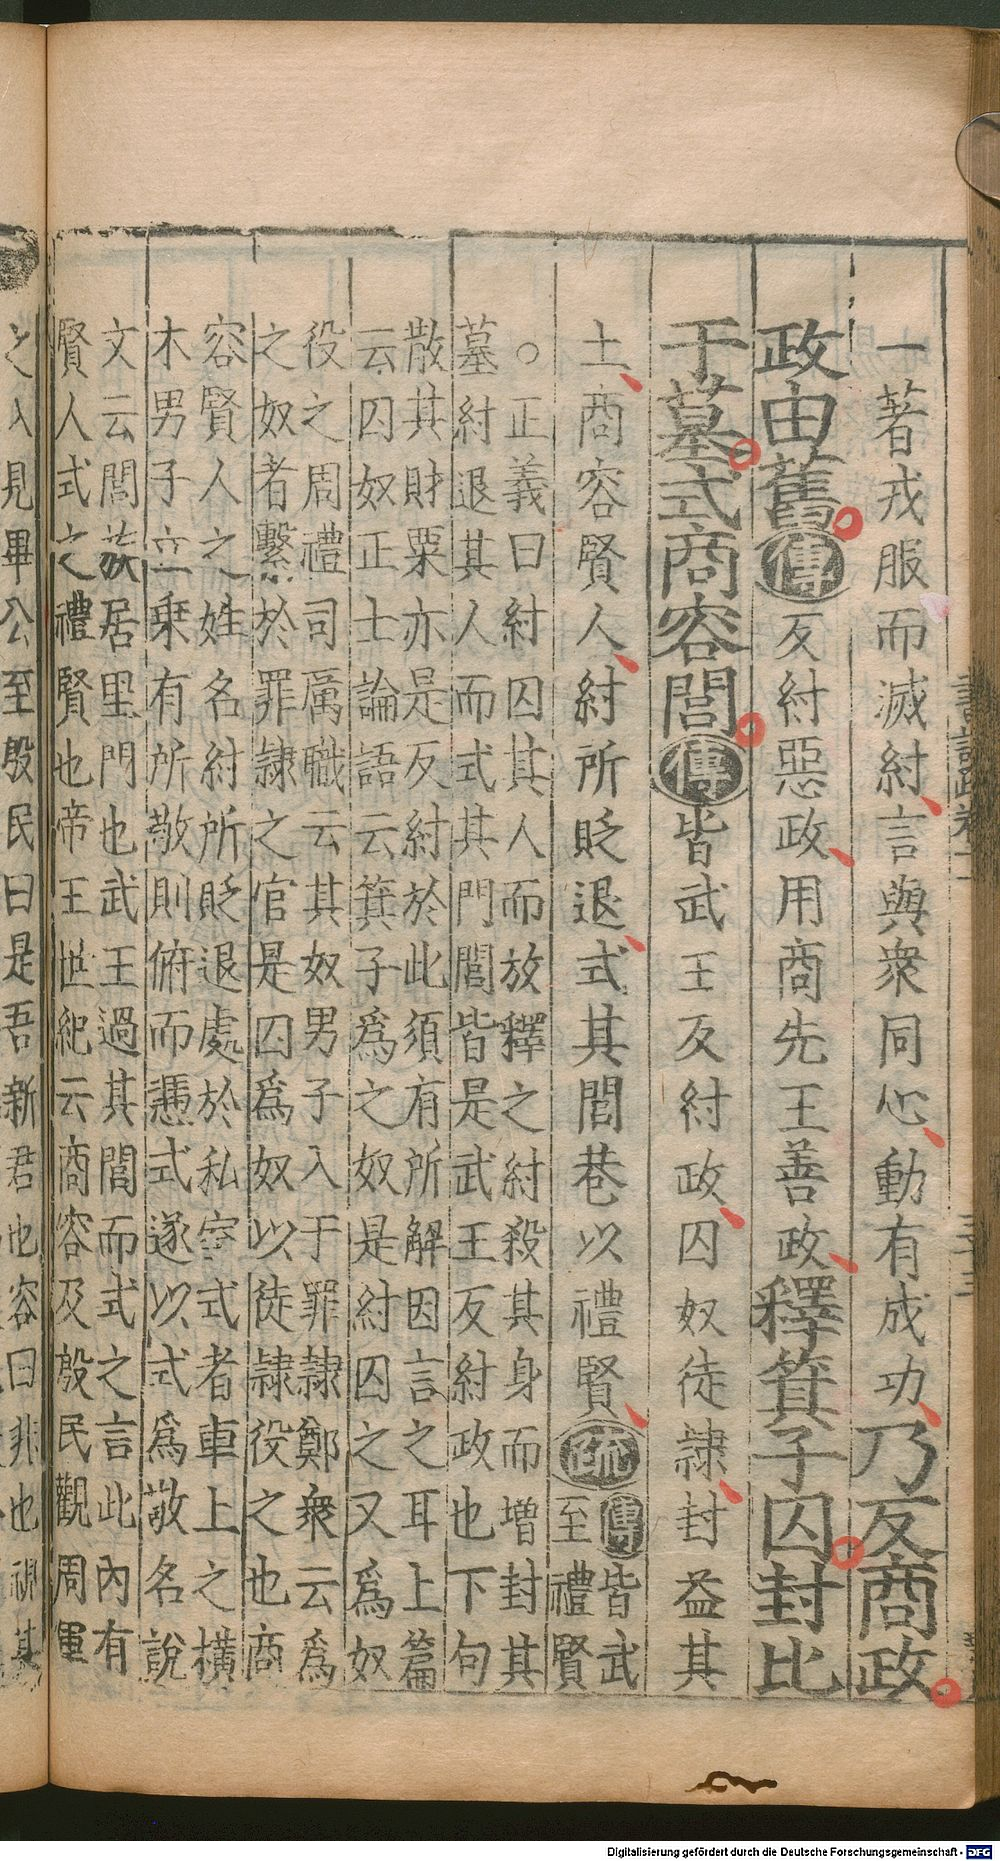 一著戎服而滅紂言與衆同心動有成功乃反商政
政由舊傳反紂惡政用商先王善政釋箕子囚封比
干墓式商容閭傳皆武王反紂政囚奴徒隸封益其
土商容賢人紂所貶退式其閭巷以禮賢疏傳皆武
至禮賢
○正義曰紂囚其人而放釋之紂殺其身而增封其
墓紂退其人而式其門閭皆是武王反紂政也下句
散其財粟亦是反紂於此須有所解因言之耳上篇
云囚奴正士論語云箕子爲之奴是紂囚之又爲奴
役之周禮司厲職云其奴男子入于罪隸鄭衆云爲
之奴者繫於罪隸之官是囚爲奴以徒隸役之也商
容賢人之姓名紂所貶退處於私室式者車上之橫
木男子立乗有所敬則俯而憑式遂以式爲敬名說
文云閭族居里門也武王過其閭而式之言此內有
賢人式之禮賢也帝王世紀云商容及殷民觀周軍
之入見畢公至殷民曰是吾新君也容曰非也視其
Digitalisierung gefördert durch die Deutsche Forschungsgemeinschaft - DFG